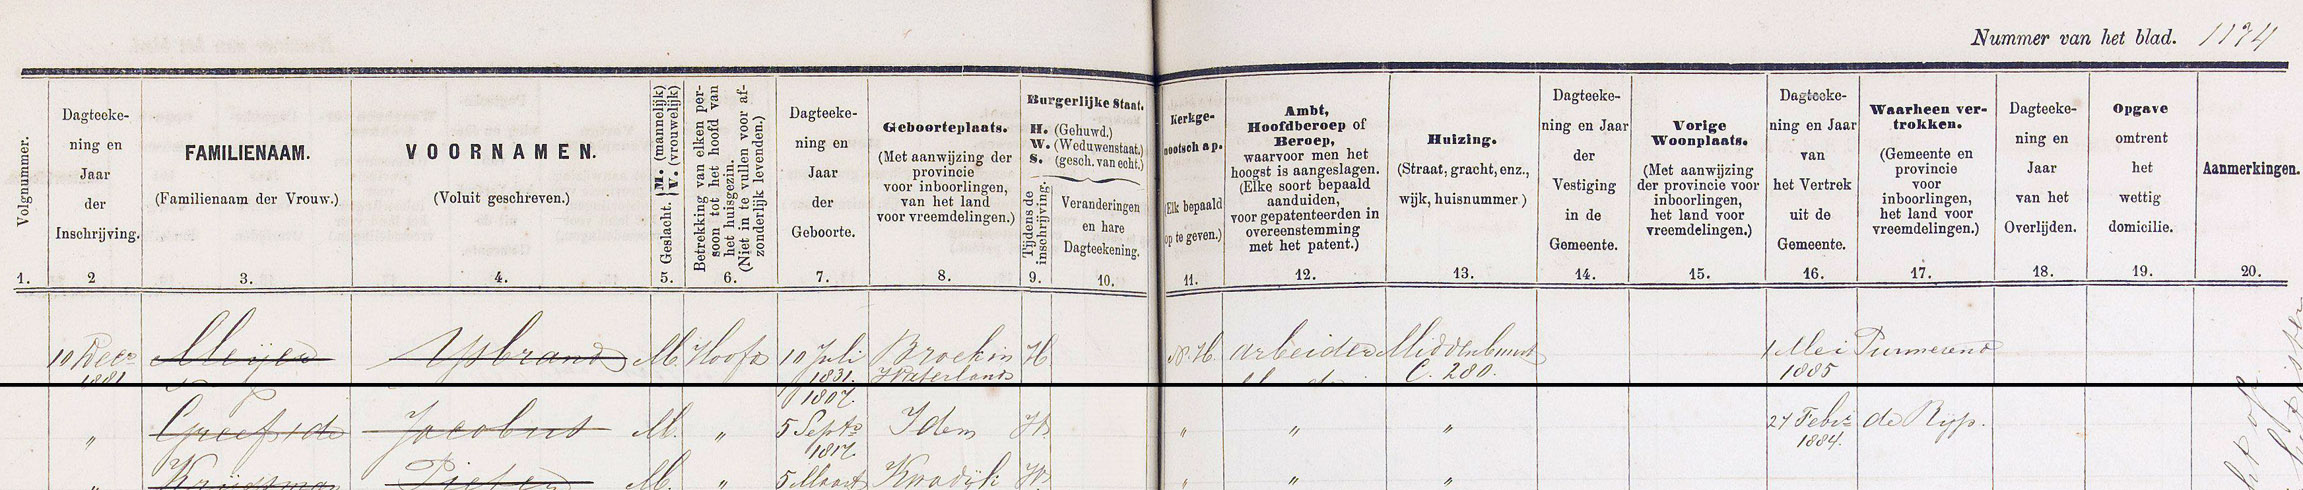 Nummer van het blad. 1174
Volgnummer.
Dagteeke-
ning en
Jaar
der
Inschrijving.
FAMILIENAAM.
(Familienaam der Vrouw.)
VOORNAMEN.
(Voluit geschreven.)
Geslacht. M. (mannelijk)
V. (vrouwelijk)
Betrekking van elken per-
soon tot het hoofd van
het huisgezin.
(Niet in te vullen voor af-
zonderlijk levenden.)
Dagteeke-
ning en
Jaar
der
Geboorte.
Geboorteplaats.
(Met aanwijzing der
provincie
voor inboorlingen,
van het land
voor vreemdelingen.)
Burgerlijke Staat.
H. (Gehuwd.)
W. (Weduwenstaat.)
S. (gesch. van echt.)
Tijdens de
inschrijving.
Veranderingen
en hare
Dagteekening.
Kerkge-
nootschap.
(Elk bepaald
op te geven.)
Ambt,
Hoofdberoep of
Beroep,
waarvoor men het
hoogst is aangeslagen.
(Elke soort bepaald
aanduiden,
voor gepatenteerden in
overeenstemming
met het patent.)
Huizing.
(Straat, gracht, enz.,
wijk, huisnummer)
Dagteeke-
ning en Jaar
der
Vestiging
in de
Gemeente.
Vorige
Woonplaats.
(Met aanwijzing
der provincie voor
inboorlingen,
het land voor
vreemdelingen.)
Dagteeke-
ning en Jaar
van
het Vertrek
uit de
Gemeente.
Waarheen ver-
trokken.
(Gemeente en
provincie
voor
inboorlingen,
het land voor
vreemdelingen.)
Dagteeke-
ning en
Jaar
van het
Overlijden.
Opgave
omtrent
het
wettig
domicilie.
Aanmerkingen.
1. 2 3. 4. 5. 6. 7. 8. 9. 10. 11. 12. 13. 14. 15. 16. 17. 18. 19. 20.
10 Decr Meijer IJsbrand M. Hoofd 10 Juli Broek in H. N.H. Arbeider Middenbuurt 1 Mei Purmerend
1881 1831. Waterland C. 280. 1885
1807.
" Greef, de Jacobus M. " 5 Septr Idem W. " " " 27 Febr de Rijp.
1817. 1884.
" Kruijsman Pieter M. " 5 Maart Kwadijk W. " " "